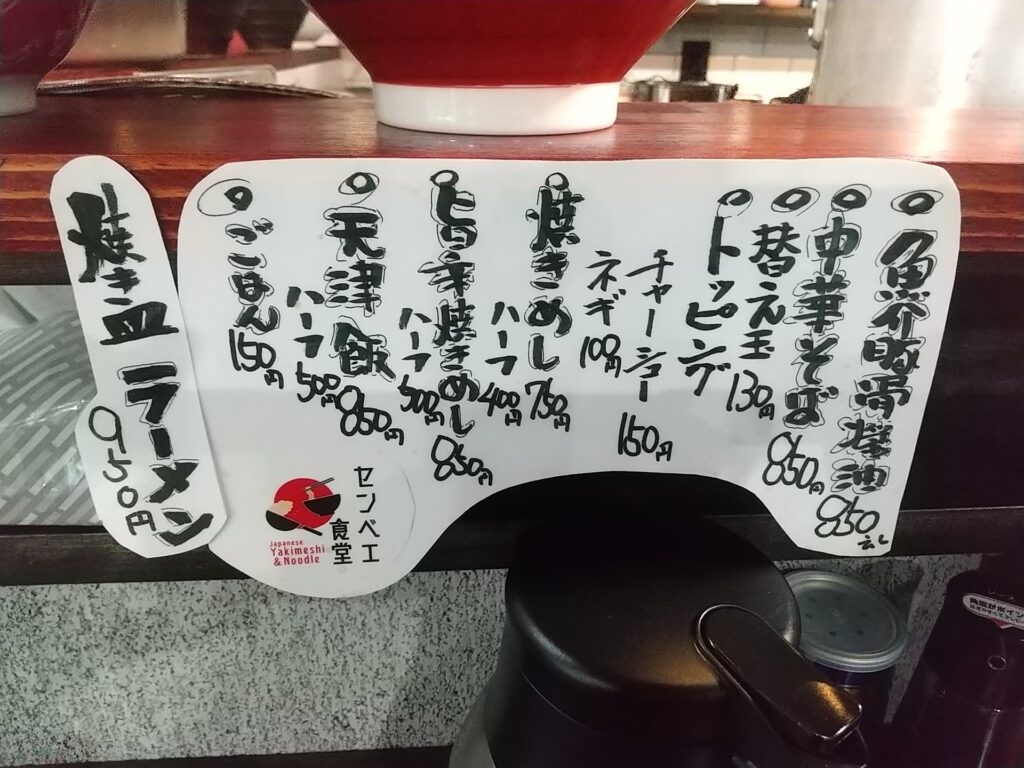 魚介豚骨醤油
850
中華そば
850円
替え玉
130円
トッピング
チャーシュー
150円
ネギ
100円
焼きめし
750円
ハーフ
400円
旨辛焼きめし
850円
ハーフ
500円
天津飯
850円
ハーフ
500円
ごはん
150円
焼き皿
ラーメン
950円
センベエ
食堂
Japanese
Yakimeshi
& Noodle
角度がポイン